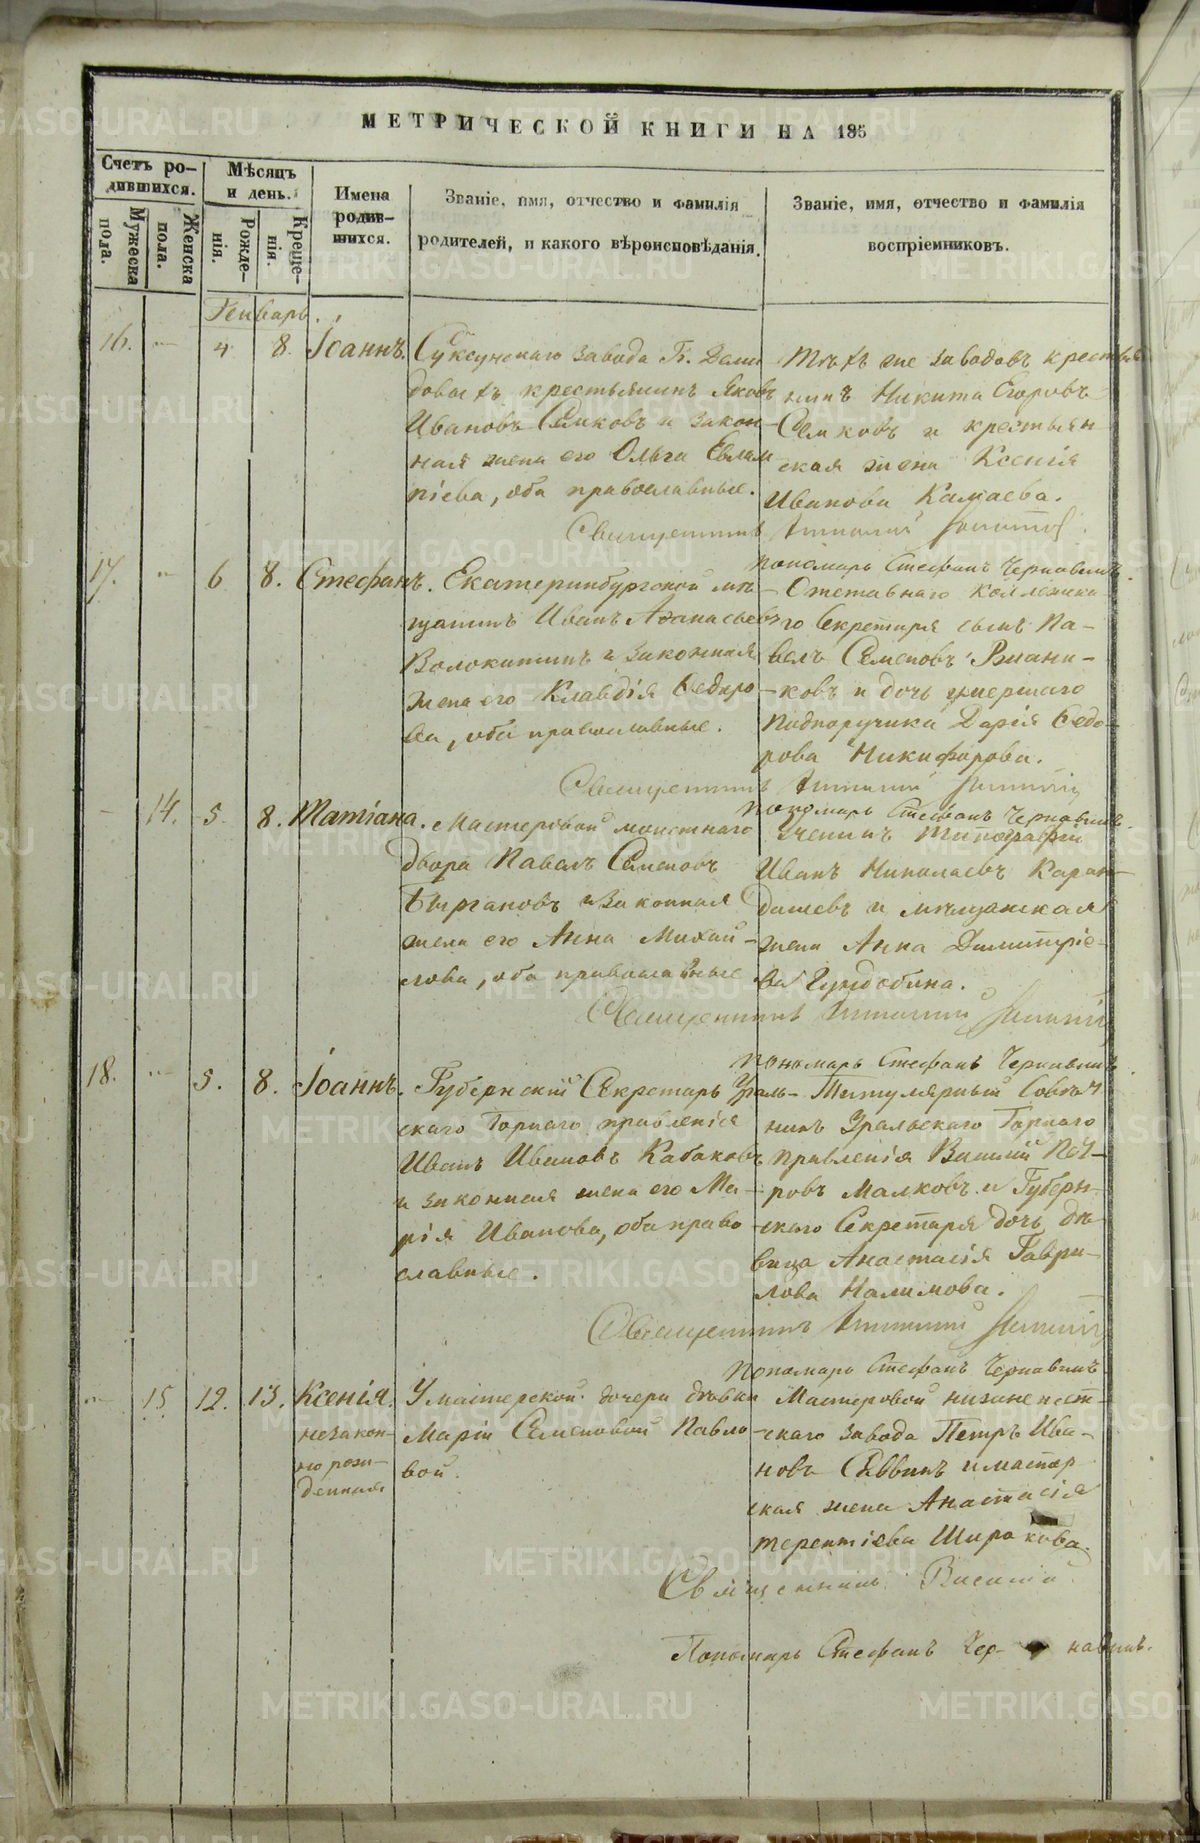 МЕТРИЧЕСКОЙ КНИГИ НА 185
Счетъ ро-
дившихся.
Мужеска
пола.
Женска
пола.
Мѣсяцъ
и день.
Рожде-
нія.
Креще-
нія.
Имена
родив-
шихся.
Званіе, имя, отчество и фамилія
родителей, и какого вѣроисповѣданія.
Званіе, имя, отчество и фамилія
воспріемниковъ.
Генварь.
16. — 4 8. Іоаннъ.
Суксунскаго завода Гг. Деми
довыхъ крестьянинъ Яковъ
Ивановъ Семковъ и закон-
ная жена его Ольга Евлам
піева, оба православные.
Тѣхъ же заводовъ крестья
нинъ Никита Егоровъ
Семковъ и крестьян
ская жена Ксенія
Иванова Камаева.
Священникъ
Пономарь Стефанъ Чернавинъ.
17. — 6 8. Стефанъ.
Екатеринбургской мѣ-
щанинъ Иванъ Аѳанасьевъ
Волокитинъ и законная
жена его Клавдія Ѳедоро-
ва, оба православные.
Отставнаго Коллежска
го Секретаря сынъ Па-
велъ Семеновъ
ковъ и дочь умершаго
подпоручика Дарія Ѳедо-
рова Никифорова.
Священникъ
Пономарь Стефанъ Чернавинъ.
— 14. 5. 8. Татіана.
Мастеровой монетнаго
двора Павелъ Семеновъ
Быргановъ и законная
жена его Анна Михай-
лова, оба православные
ученикъ Типографіи
Иванъ Николаевъ Каран-
дашевъ и мѣщанская
жена Анна Димитріе-
ва Гундобина.
Священникъ
Пономарь Стефанъ Чернавинъ.
18. — 5. 8. Іоаннъ.
Губернскій Секретарь Ураль-
скаго Горнаго правленія
Иванъ Ивановъ Кабаковъ
и законная жена его Ма-
рія Иванова, оба право
славные.
Титулярный Совѣт
никъ Уральскаго Горнаго
Правленія Василій Пет-
ровъ Малковъ и Губерн-
скаго Секретаря дочь дѣ-
вица Анастасія Гаври-
лова Налимова.
Священникъ
Пономарь Стефанъ Чернавинъ
— 15. 12. 13. Ксенія.
незакон-
но рож-
денная
У мастерской дочери дѣвки
Маріи Семеновой Павло-
вой.
Мастеровой нижне исет-
скаго завода Петръ Ива-
новъ Саввинъ и мастер
ская жена Анастасія
терентіева Широкова.
Священникъ Василій
Пономарь Стефанъ Чер- навинъ.
METRIKI.GASO-URAL.RU